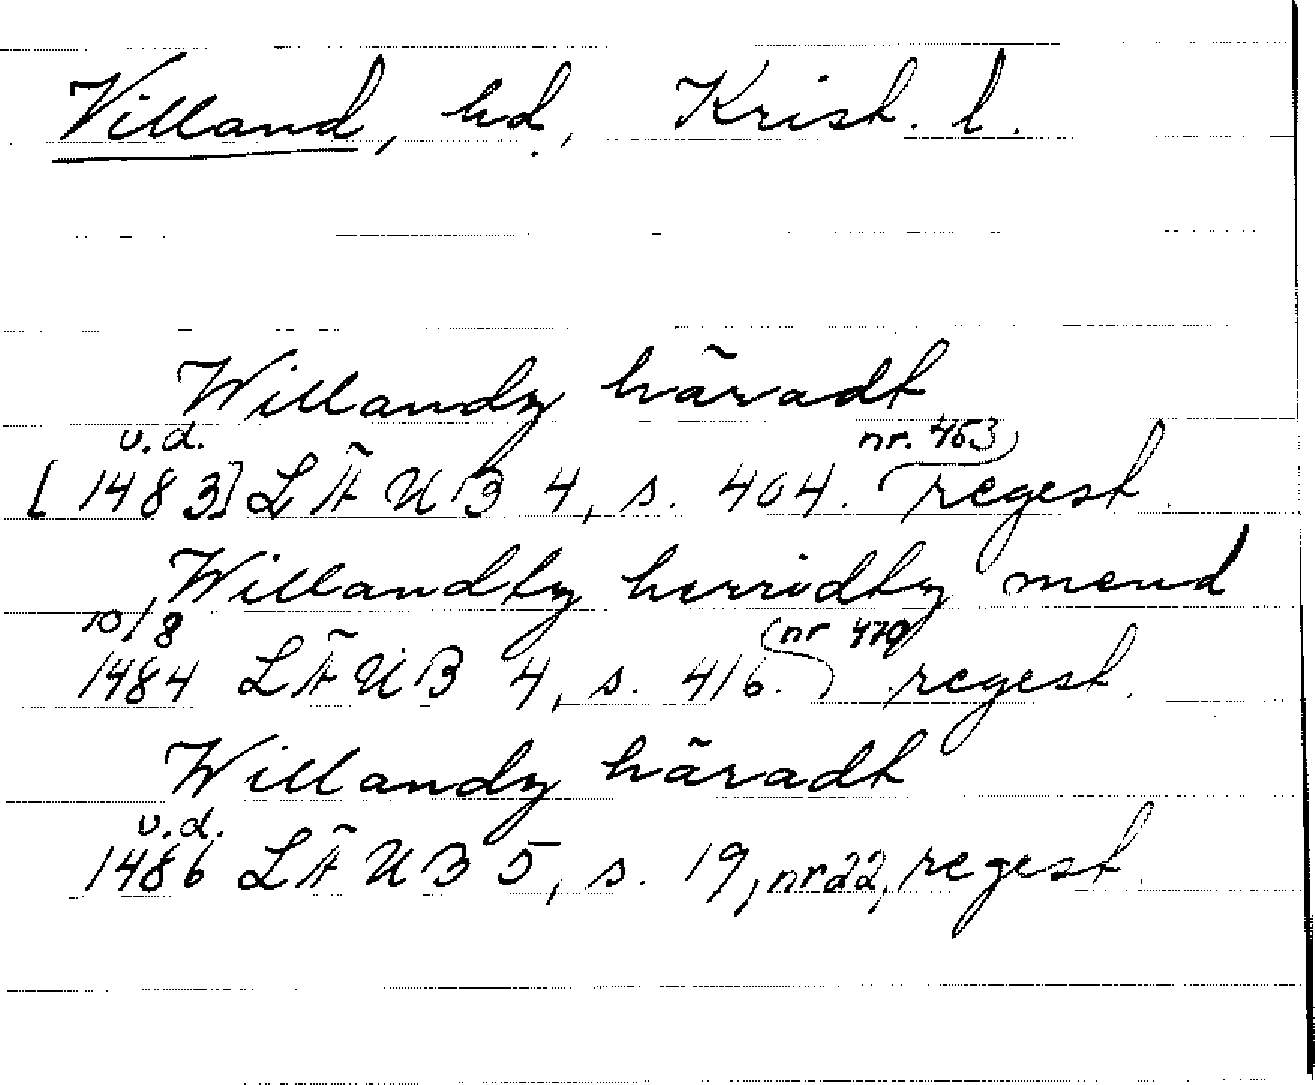 Villand, hd, Krist. l.
Willandz häradt
u.d. nr. 453
[1483] LÄUB 4, s. 404. regest.
Willandtz herridtz mend
10/8 (nr 470)
1484 LÄUB 4, s. 416. regest.
Willandz häradt
u.d.
1486 LÄUB 5, s. 19, nr 22, regest.